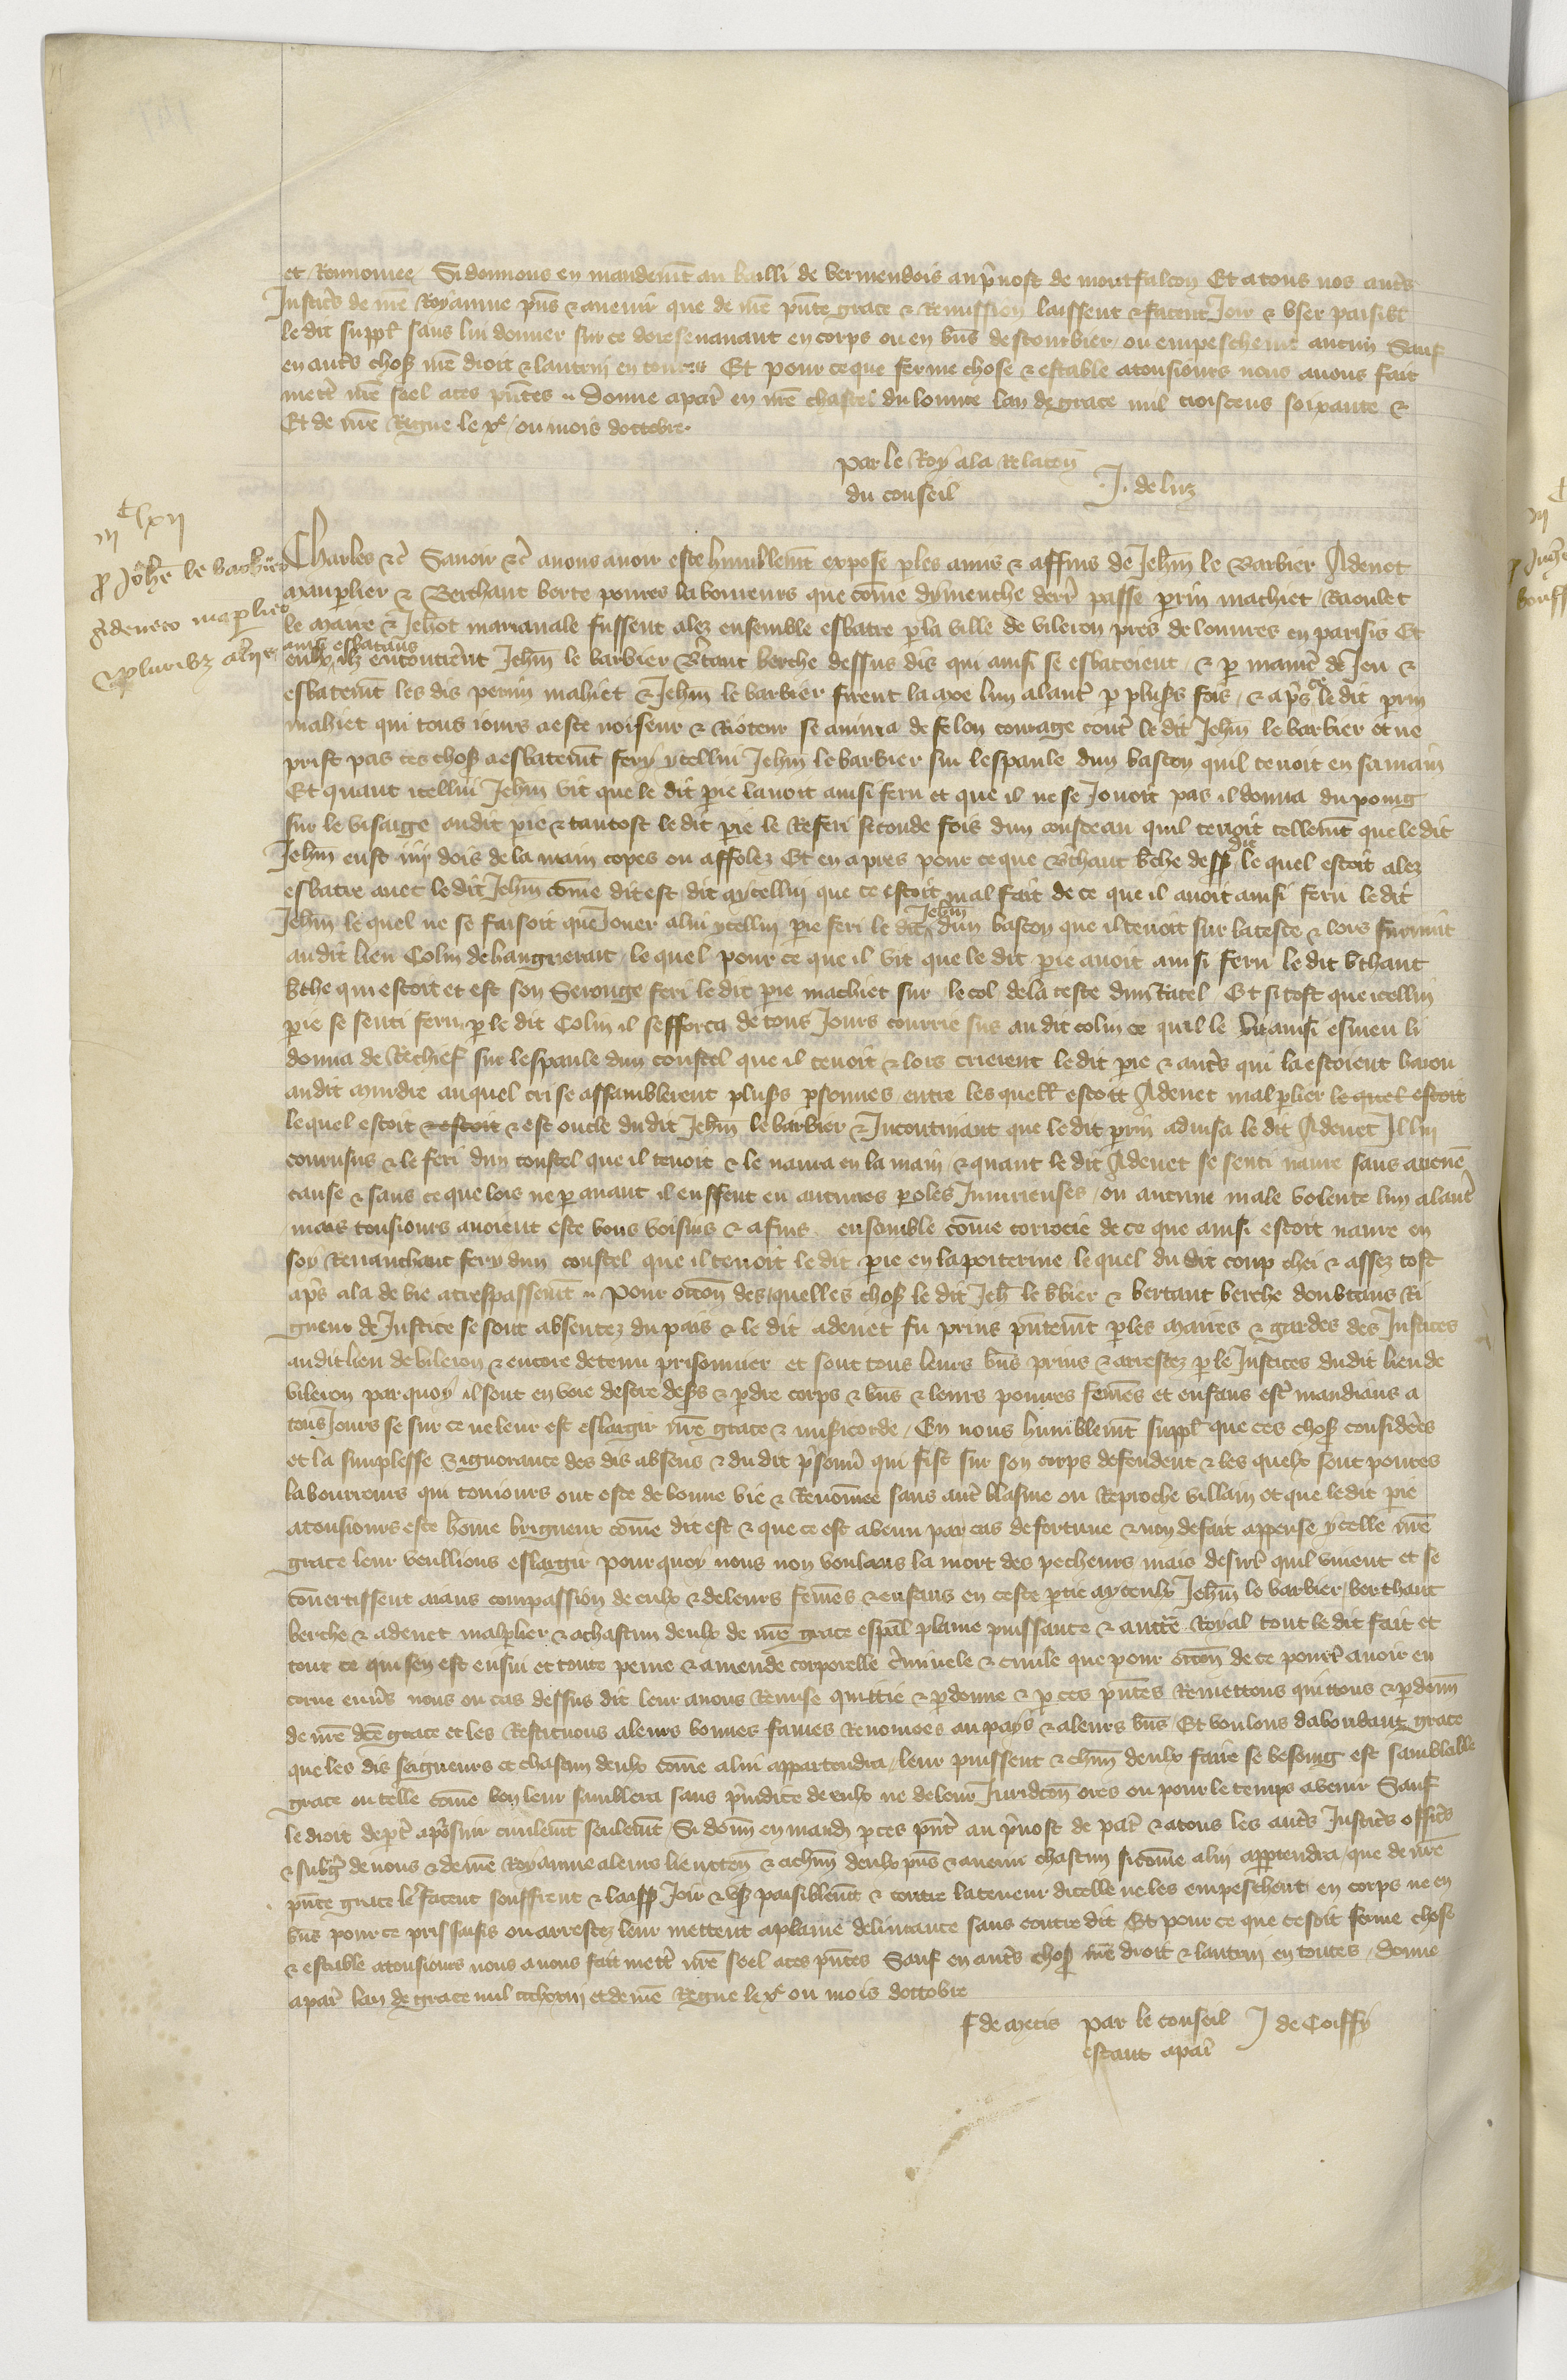 et Renommee Si donnons en mandemt au bailli de vermendois au pruost de montfalcon Et a tous nos autrs
Justicrs de nre Royaume pns & auenir que de nre pnte grace & Remission laissent & facent Joir & vser paisibl
le dit suppl sans lui donner sur ce doresenauant en corps ou en bns destourbier ou empeschemt aucun Sauf
en autrs choses nre droit & lautrui en toutes Et pour ce que ferme chose & estable a tousiours nous auons fait
mettr nre seel a ces pntes Donne a par en nre chastel du louure lan de grace mil troiscens soixante &
Et de nre Regne le xe ou mois doctobre
par le Roy a la Relacon
du conseil J. de luz
iijclxij
p Johe le barbier
Adeneto malplier
& pluribz aliis
Charles &c Sauoir &c auons auoir este humblemt expose p les amis & affins de Jehm le Barbier Adenet
malplier & Berthaut berte poures laboureurs que come dymenche derr passe prin machiet Raoulet
le maire & Jehot marauale fussent alez ensemble esbatre p la ville de vileron pres de louures en parisis Et
ainsi esbatans
eulx ilz encontrent Jehm le barbier Btaut berche dessus dis qui ainsi se esbatoient & p manie de Jeu &
esbatemt les dis perrin mahiet & Jehm le barbier firent la moe lun a lautr p pluss fois & aprs ce le dit prin
mahiet qui tous iours a este noiseur & Rioteur se anima de felon courage contr le dit Jehm le barbier et ne
prist pas ces choses a esbatemt fery ycellui Jehm le barbier sur lespaule dun baston quil tenoit en sa main
Et quant icellui Jehm vit que le dit pie lauoit ainsi feru et que il ne se Jouoit pas il donna du poing
sur le visaige au dit pie & tantost le dit pie le Referi seconde fois dun cousteau quil tenoit tellemt que le dit
Jehm eust iiij dois de la main copes ou affolez Et en apres pour ce que Bthaut bche dess dit le quel estoit alez
esbatre auec le dit Jehm come dit est dit a ycellui que ce estoit mal fait de ce que il auoit ainsi feru le dit
Jehm le quel ne se faisoit que Jouer a lui ycellui pie feri le dit Jehm dun baston que il tenoit sur la teste & lors suruint
au dit lieu Colin de hanguerait le quel pour ce que il vit que le dit pie auoit ainsi feru le dit bthaut
bthe qui estoit et est son Serouge feri le dit pie machiet sur le col de la teste dun Ratel Et si tost que icellui
pie se senti feru p le dit Colin il sefforca de tous Jours courrie sus au dit colin ce quil le vit ainsi esmeu li
donna de Rechief sur lespaule dun coustel que il tenoit & lors crierent le dit pie & autrs qui la estoient haron
au dit murdre au quel cri se assamblerent pluss psonnes entre les quell estoit Adenet malplier le quel estoit
le quel estoit & estoit & est oncle du dit Jehm le barbier & Incontinant que le dit prin aduisa le dit Adenet Il lui
couru sus & le feri dun coustel que il tenoit & le naura en la main & quant le dit Adenet se senti naure sans aucune
cause & sans ce que lors ne par auant il eussent eu aucunes poles Iniurieuses ou aucune male volente lun a lautr
mais tousiours auoient este bons voisins & afins ensemble come corrocie de ce que ainsi estoit naure en
soy Reuanchant fery dun coustel que il tenoit le dit pie en la poiterine le quel du dit coup chei & assez tost
aprs ala de vie a trespassemt Pour occon des quelles choses le dit Jeh le bbier & bertaut berche doubtans Ri
gueur de Justice se sont absentez du pais & le dit adenet fu prins pntemt p les maires & gardes des Justices
au dit lieu de vileron & encore detenu prisonnier et sont tous leurs bns prins & arrestez p le Justices du dit lieu de
vileron par quoy il sont en voie destre desrs & pdre corps & bns & leurs poures femes et enfans estr mandians a
tous Jours se sur ce ne leur est eslargie nre grace & misicorde En nous humblemt suppl que ces choses consideres
et la simplesse & ignorance des dis absens & du dit prisonn qui fist sur son corps defendent & les quelx sont poures
laboureurs qui toujours ont este de bonne vie & Renomee sans autr blasme ou Reproche villain et que le dit pie
a tousiours este home brigueur come dit est & que ce est avenu par cas de fortune & non de fait appense ycelle nre
grace leur veullions eslargir pour quoy nous non voulans la mort des pecheurs mais desirs quil viuent et se
conuertissent aians compassion de eulx & de leurs femes & enfans en ceste ptie a yceulx Jehm le barbier berthaut
berche & adenet malplier & a chascun deulx de nre grace espal plaine puissance & auctte Royal tout le dit fait et
tout ce qui sen est ensui et toute peine & amende corporelle criminele & ciuile que pour occon de ce pourr auoir en
corue enuers nous ou cas dessus dit leur auons Remise quittie & pdonne & p ces pntes Remettons quittons & pdonn
de nre dce grace et les Restituons a leurs bonnes fames Renomees au pays & a leurs bns Et voulons dabondant grace
que les dis seigneurs et chascun deulx come a lui appartendra leur puissent & chm deulx faire se besoing est samblable
grace ou telle come bon leur samblera sans preiudice de eulx ne de leur Juridicon ores ou pour le temps avenir Sauf
le droit de pte a psuir ciuilemt seulemt Si donn en mand p ces pnt au pruost de par & a tous les autrs Justicrs officrs
& subgz de nous & de nre Royaume a leurs lieutten & a chm deulx pns & auenir chascun si come a lui appartendra que de nre
pnte grace les facent seuffrent & laiss Joir & vser paisiblemt & contre la teneur dicelle ne les empeschent en corps ne en
bns pour ce pris saisis ou arrestez leur mettent a plaine deliurance sans contredit Et pour ce que ce soit ferme chose
& estable a tousiours nous auons fait mettr nre seel a ces pntes Sauf en autrs choses nre droit & lautrui en toutes Donne
a par lan de grace mil ccclxxiij et de nre Regne le xe ou mois doctobre
f de metis par le conseil J de Coiffy
estant a par